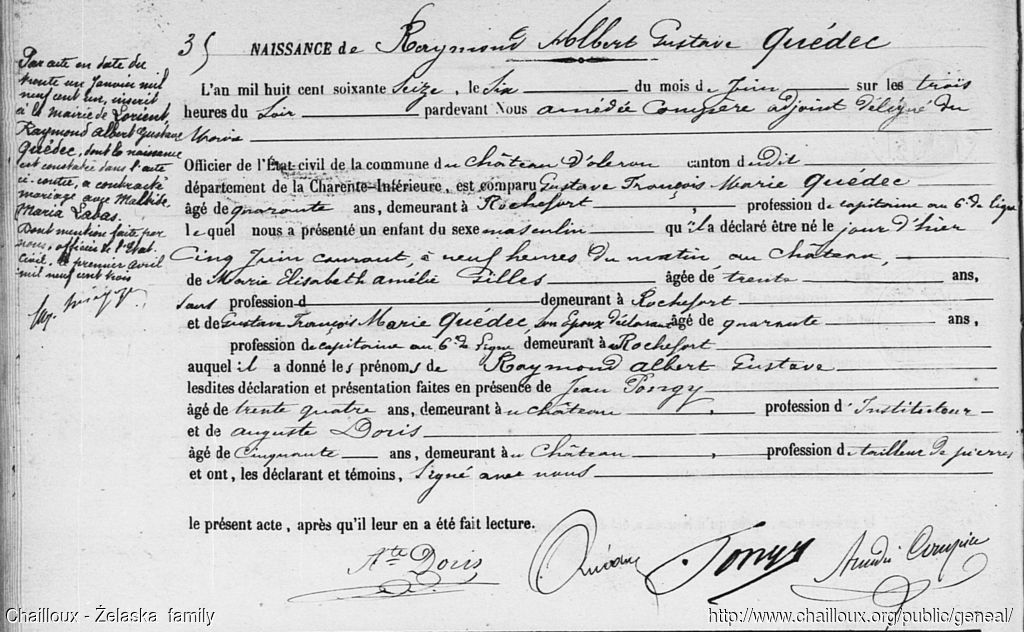 35 NAISSANCE de Raymond Albert Gustave Quédec
L'an mil huit cent soixante Seize, le Six du mois de Juin sur les trois
heures du Soir pardevant Nous amédée Compère adjoint délégué du
Maire
Officier de l'État-civil de la commune du Château d'oleron canton dudit
département de la Charente-Inférieure, est comparu Gustave François Marie Quédec
âgé de quarante ans, demeurant à Rochefort, profession de capitaine au 6e de ligne
lequel nous a présenté un enfant du sexe masculin qu'il a déclaré être né le jour d'hier
Cinq Juin courant, à neuf heures du matin au Château,
de Marie Elisabeth amélie Gilles âgée de trente ans,
sans profession d demeurant à Rochefort
et de Gustave François Marie Quédec, son Epoux déclarant âgé de quarante ans,
profession de capitaine au 6e de ligne demeurant à Rochefort
auquel il a donné les prénoms de Raymond albert Gustave
lesdites déclaration et présentation faites en présence de Jean Pongy
âgé de trente quatre ans, demeurant au château, profession d'Instituteur
et de auguste Doris
âgé de Cinquante ans, demeurant au Château, profession de tailleur de pierres
et ont, les déclarant et témoins, Signé avec nous
le présent acte, après qu'il leur en a été fait lecture.
Ate Doris Quédec Pongy Amédée Compère
Par acte en date du
trente un Janvier mil
neuf cent un, inscrit
à la mairie de Lorient,
Raymond Albert Gustave
Quédec, dont la naissance
est constatée dans l'acte
ci-contre, a contracté
mariage avec
Maria Labas.
Dont mention faite par
nous, officier de l'Etat
Civil, le premier avril
mil neuf cent trois
Chailloux - Żelaska family
http://www.chailloux.org/public/geneal/